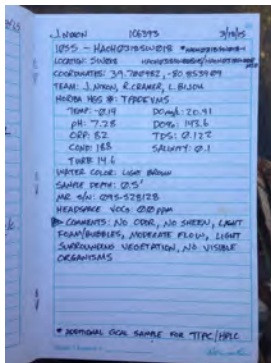 J. NIXON 106393 3/18/15
1055 - HAOH0318SW018 *HAOH0318SW018-1
LOCATION: SW018
COORDINATES: 39.700982, -80.853909
TEAM: J. NIXON, R. CRAMER, L. BIJOU
HORIBA MSS #: TPREEVMS
TEMP: -0.19 DOmg/L: 20.91
pH: 7.28 DO%: 143.6
ORP: 82 TDS: 0.122
COND: 188 SALINITY: 0.1
TURB 14.6
WATER COLOR: LIGHT BROWN
SAMPLE DEPTH: 0.5'
MR S/N: 095-528128
HEADSPACE VOCs 0.0 ppm
COMMENTS: NO ODOR, NO SHEEN, LIGHT
FOAM/BUBBLES, MODERATE FLOW, LIGHT
SURROUNDING VEGETATION, NO VISIBLE
ORGANISMS
* ADDITIONAL SAMPLE FOR